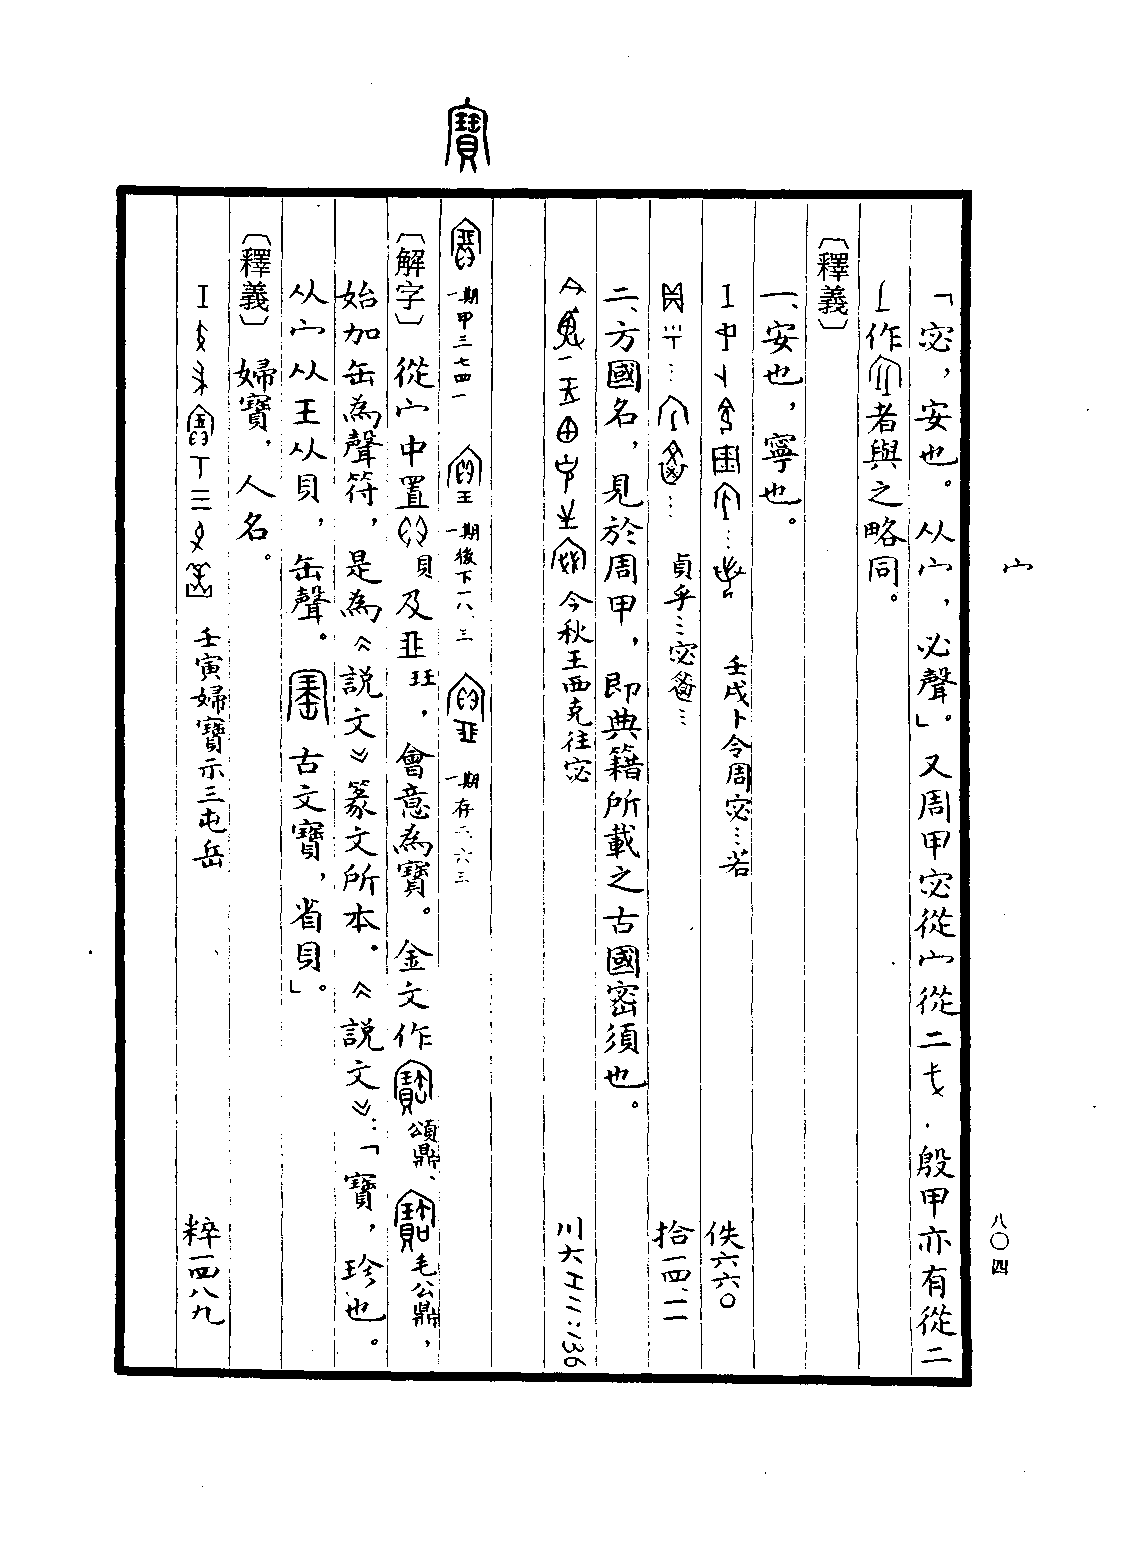 宀
八〇四
「宓，安也。从宀，必聲」。又周甲宓從宀從二戈，殷甲亦有從二
作者與之略同。
〔釋義〕
一、安也，寧也。
壬戌卜令周宓…若 佚六六〇
貞乎…宓… 拾一四、二
二、方國名，見於周甲，即典籍所載之古國密須也。
今秋王西克往宓 川大H二：136
寶
一期甲三七四一 一期後下一八、三 一期存二、六三
〔解字〕從宀中置貝及玨，會意為寶。金文作頌鼎、毛公鼎，
始加缶為聲符，是為《說文》篆文所本。《說文》：「寶，珍也。
从宀从王从貝，缶聲。古文寶，省貝」。
〔釋義〕婦寶，人名。
壬寅婦寶示三屯岳 粹一四八九